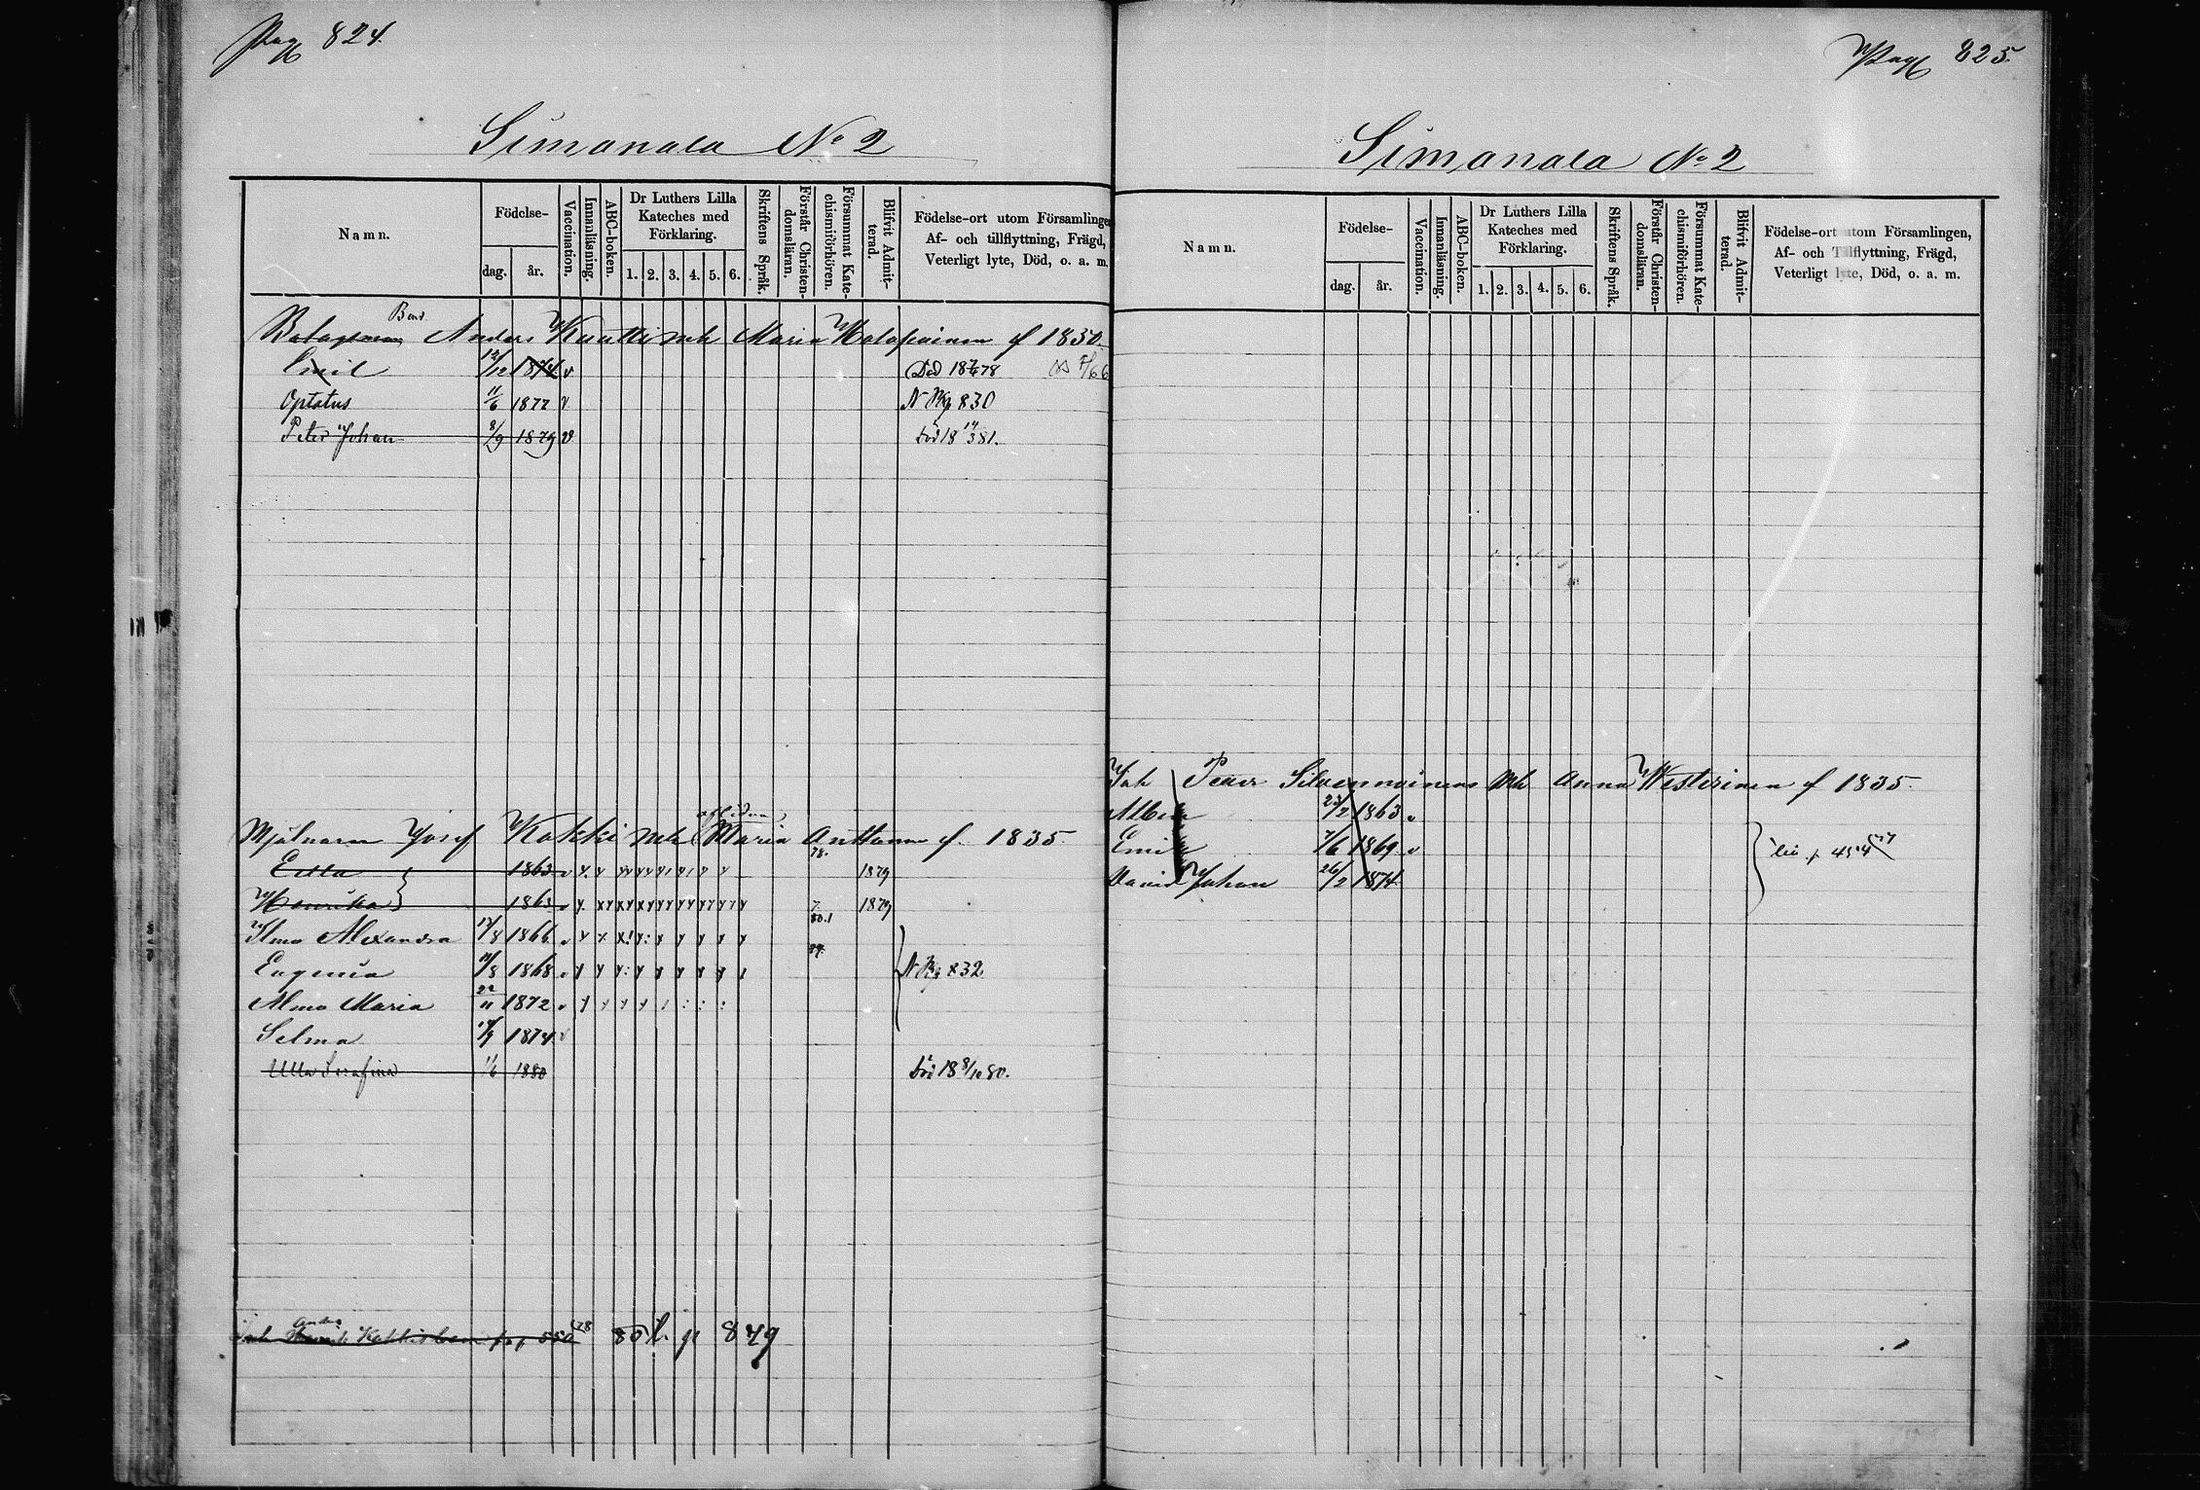 Pag 824.
Simanala No 2
Namn.
Födelse-
dag.
år.
Vaccination.
Innanläsning.
ABC-boken.
Dr Luthers Lilla
Kateches med
Förklaring.
1. 2. 3. 4. 5. 6.
Skriftens Språk.
Förstår Christen-
domsläran.
Försummat Kate-
chismiförhören.
Blifvit Admit-
terad.
Födelse-ort utom Församlingen
Af- och tillflyttning, Frägd,
Veterligt lyte, Död, o. a. m.
Anders Kuutti Maria f 1830.
Emil 12/12 1874 v Död 18 78
Optatus 11/6 1877 v N Bkp 830
Peter Johan 8/9 1879 v död 18 14/3 81.
Mjölnaren Josef Kokki mh Maria Anttonen f. 1835
78.
1863 v 1879
Henrika 1863 v 1879
Ilma Alexandra 1866 v
Eugenia 1868 v N 832
Alma Maria 22/11 1872 v
Selma 1874 v
Ulla Serafina 11/6 1880 död 18 8/10 80.
p 550 849
Pag 825.
Simanala No 2
Namn.
Födelse-
dag.
år.
Vaccination.
Innanläsning.
ABC-boken.
Dr Luthers Lilla
Kateches med
Förklaring.
1. 2. 3. 4. 5. 6.
Skriftens Språk.
Förstår Christen-
domsläran.
Försummat Kate-
chismiförhören.
Blifvit Admit-
terad.
Födelse-ort utom Församlingen,
Af- och Tillflyttning, Frägd,
Veterligt lyte, Död, o. a. m.
Peter Silvennoinens mh Anna Westerinen f 1835.
Albin 1863 v
Emil 7/6 1869 v
David Johan 26/2 1874